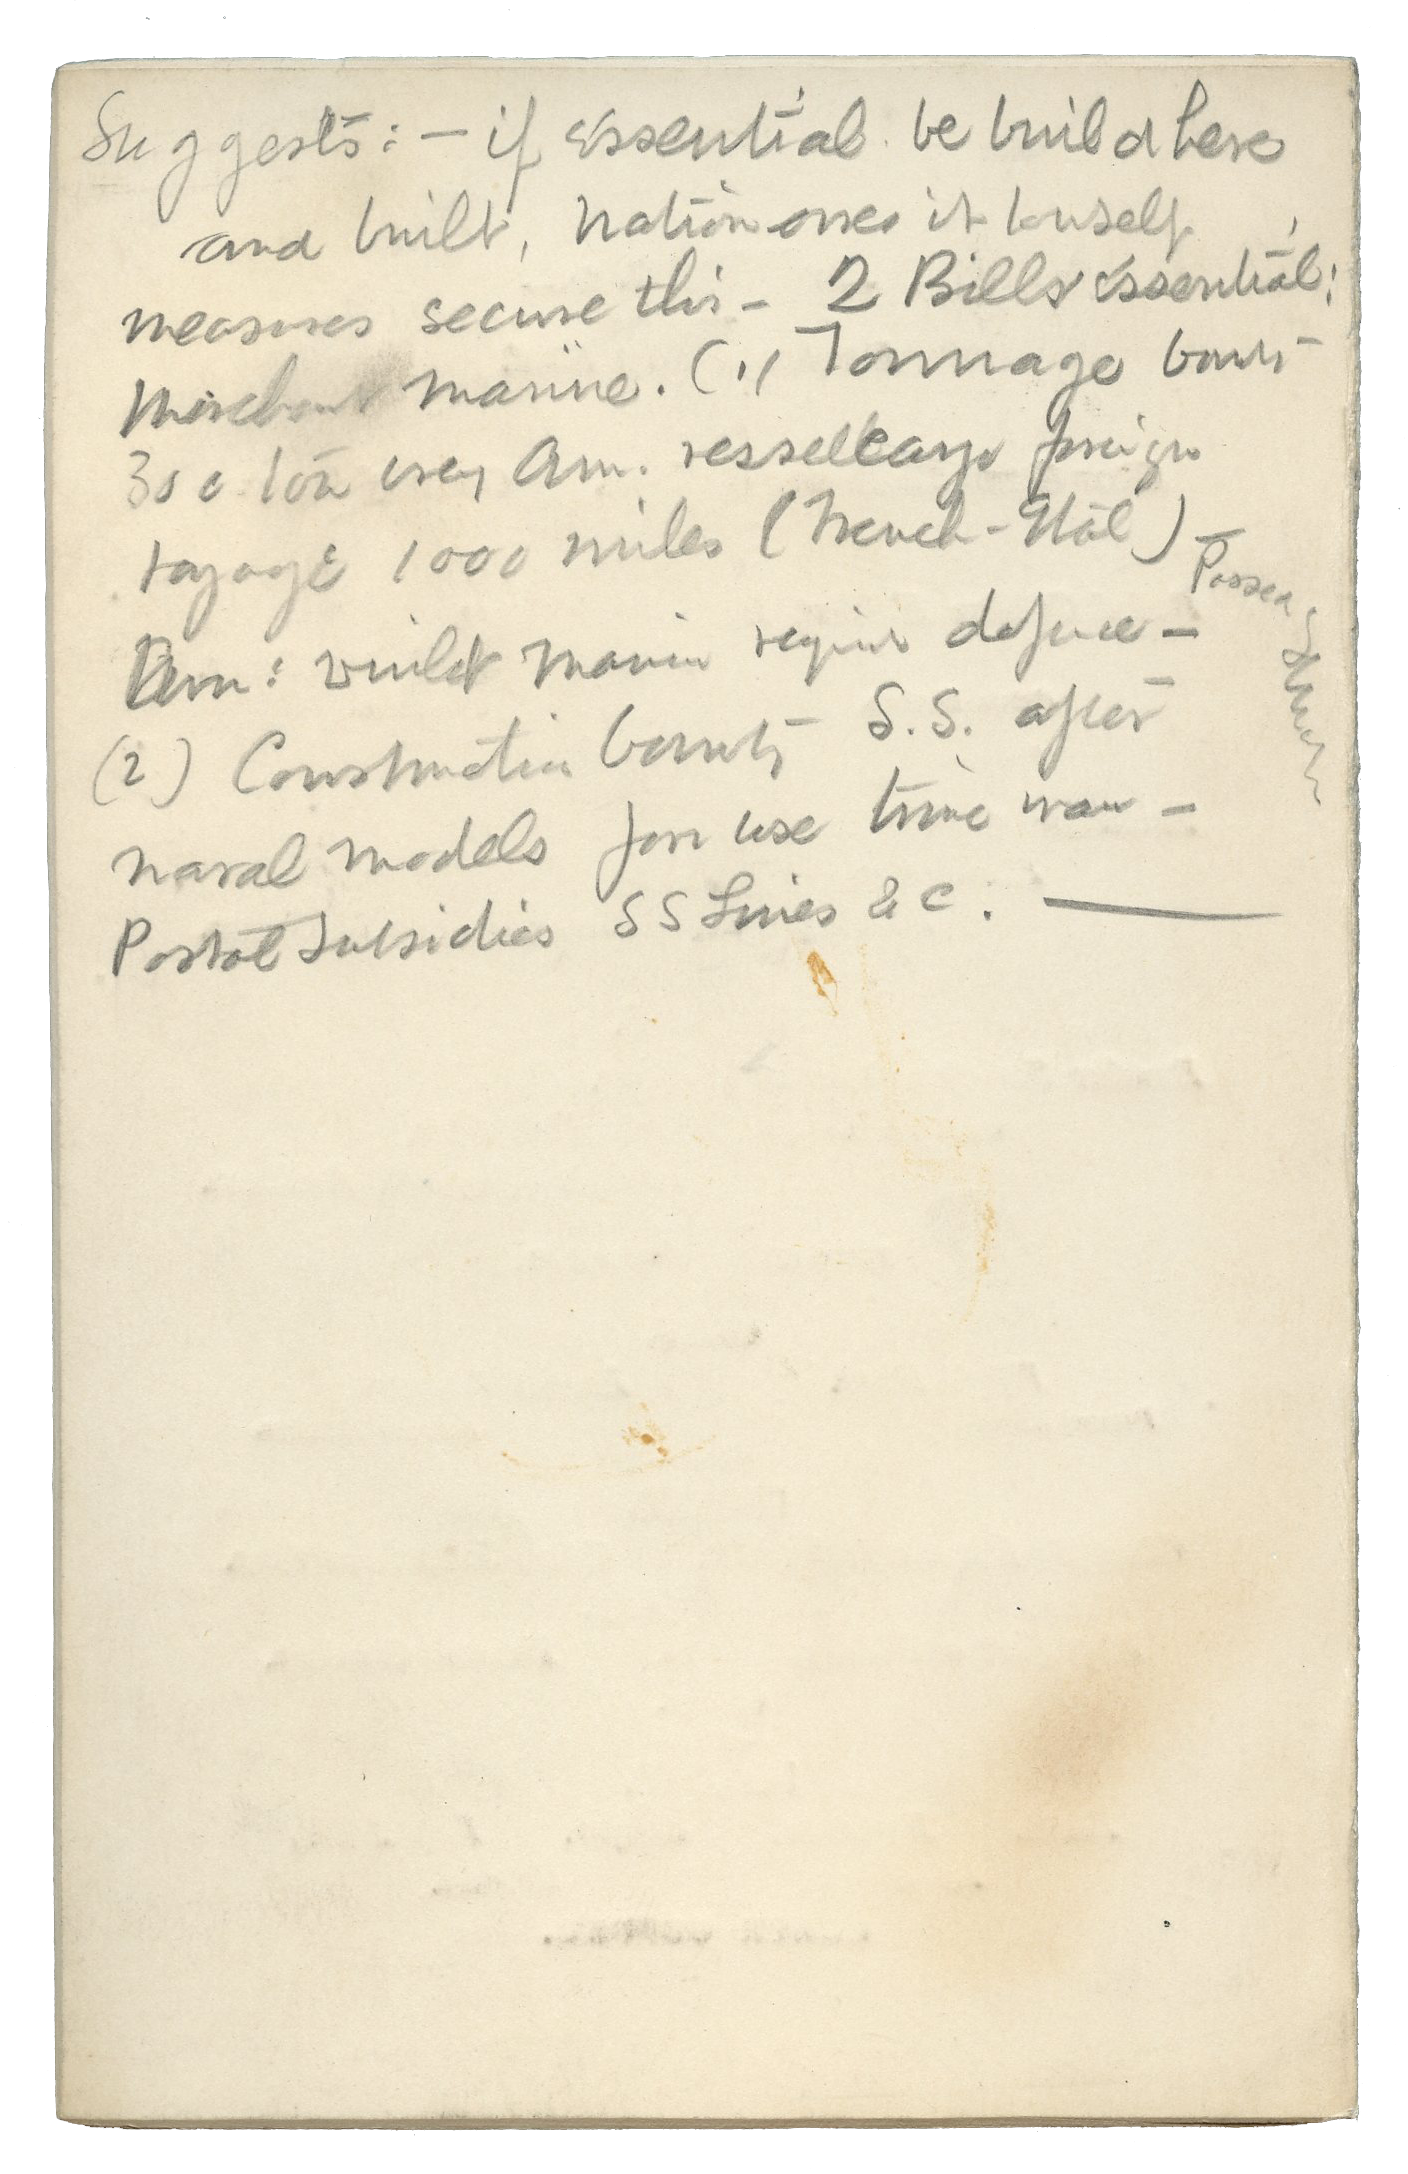 Suggests: - if essential be build here
and built, nation owes it to itself
measures secure this - 2 Bills essential:
Merchant Marine. (1) Tonnage bounty
30 c. ton every Am. vessel cargo foreign
voyage 1000 miles (French - Ital) -
Passen
Am: built marine require defence -
(2) Construction bounty S.S. after
naval models for use time war -
Postal subsidies SS Lines &c.